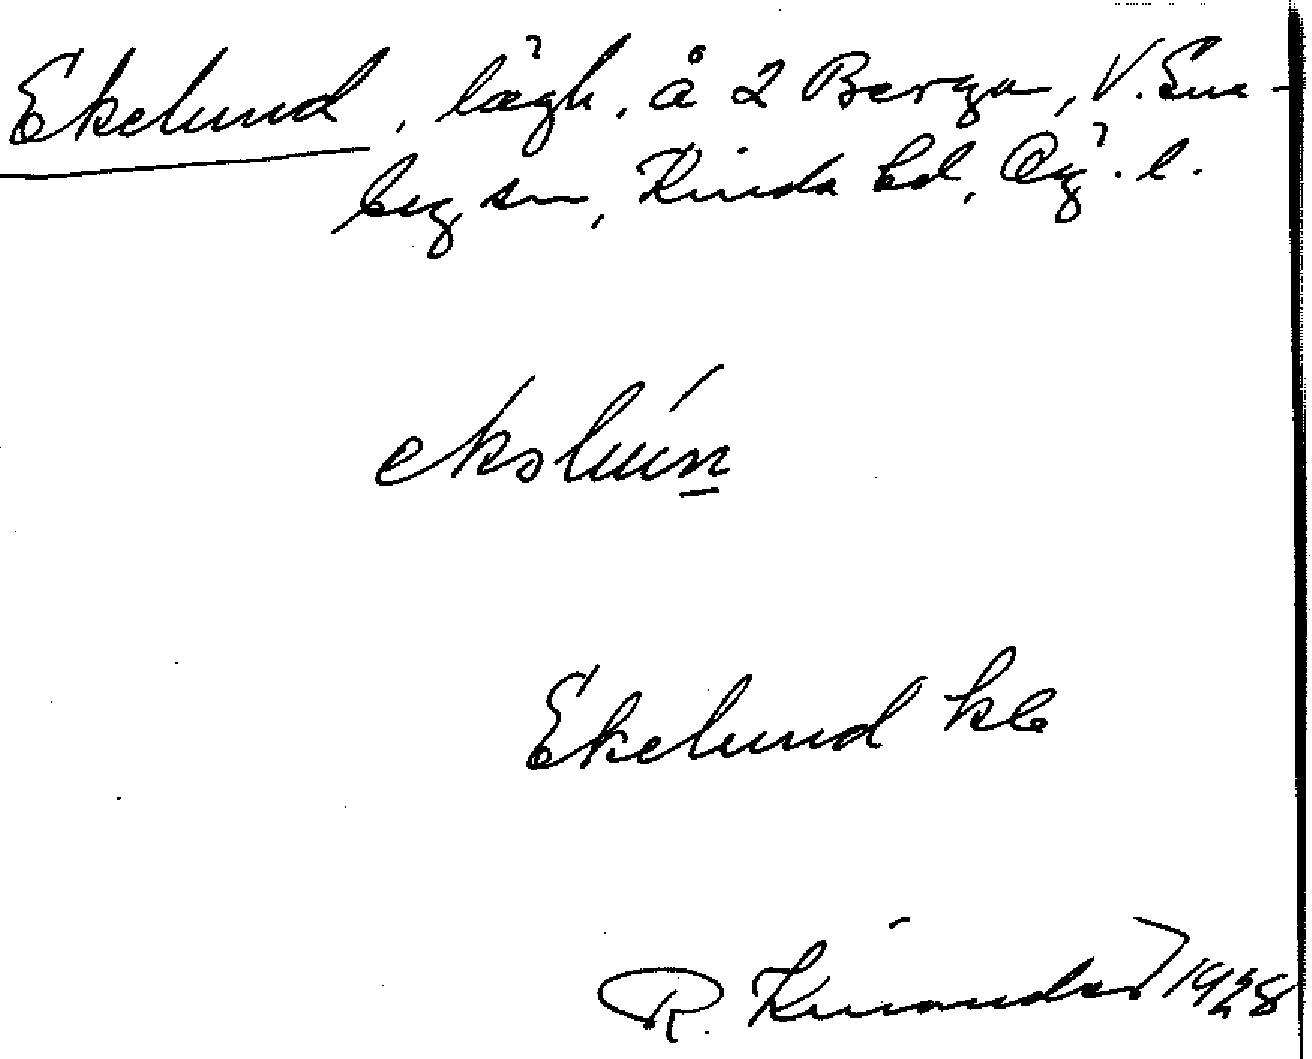 Ekelund, lägh. å 2 Berga, V. Ene-
by sn, Kinda hd, Ög. l.
ekəlún
Ekelund kb
R. Kinander 1928